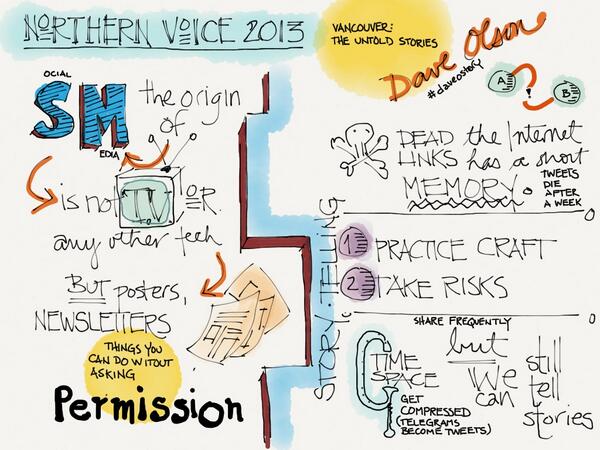 NORTHERN VOICE 2013
VANCOUVER:
THE UNTOLD STORIES
Dave Olson
#daveostory
A
!
B
SOCIAL
MEDIA
the origin
of
is not TV OR
any other tech
BUT posters,
NEWSLETTERS
THINGS YOU
CAN DO WITOUT
ASKING
Permission
STORY·TELLING
DEAD
LINKS
the Internet
has a short
MEMORY.
TWEETS
DIE
AFTER
A WEEK
1 PRACTICE CRAFT
2 TAKE RISKS
SHARE FREQUENTLY
TIME
SPACE
GET
COMPRESSED
(TELEGRAMS
BECOME TWEETS)
but
we
can
still
tell
stories